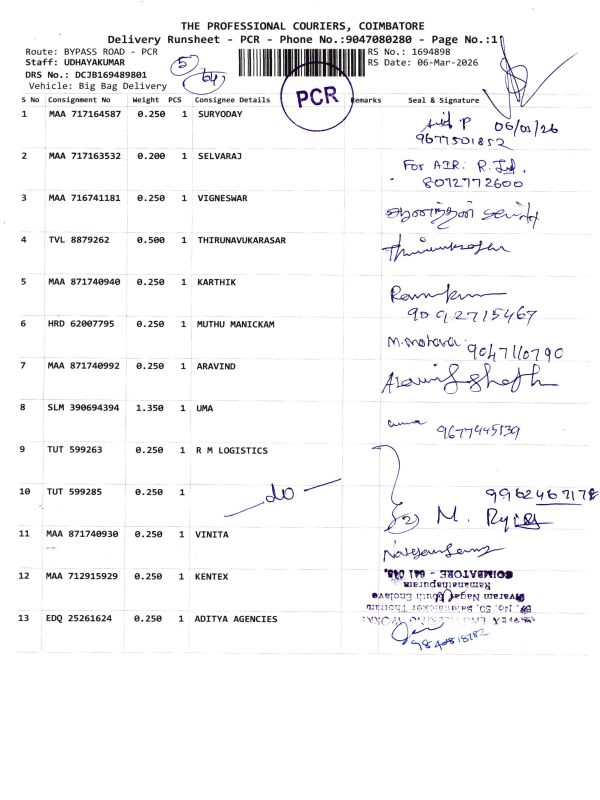 THE PROFESSIONAL COURIERS, COIMBATORE
Delivery Runsheet - PCR - Phone No.:9047080280 - Page No.:1
Route: BYPASS ROAD - PCR RS No.: 1694898
Staff: UDHAYAKUMAR 5 RS Date: 06-Mar-2026
DRS No.: DCJB169489801 64
Vehicle: Big Bag Delivery PCR
S No Consignment No Weight PCS Consignee Details Remarks Seal & Signature
1 MAA 717164587 0.250 1 SURYODAY 06/03/26
9677501852
2 MAA 717163532 0.200 1 SELVARAJ For AIR. R.
8072772600
3 MAA 716741181 0.250 1 VIGNESWAR
4 TVL 8879262 0.500 1 THIRUNAVUKARASAR
5 MAA 871740940 0.250 1 KARTHIK Ramkumar
9092715467
6 HRD 62007795 0.250 1 MUTHU MANICKAM
9047110790
7 MAA 871740992 0.250 1 ARAVIND
8 SLM 390694394 1.350 1 UMA uma
9677445139
9 TUT 599263 0.250 1 R M LOGISTICS
10 TUT 599285 0.250 1 — do — 9962467178
(2) M.
11 MAA 871740930 0.250 1 VINITA
12 MAA 712915929 0.250 1 KENTEX COIMBATORE - 641 045.
Ramanathapuram
13 EDQ 25261624 0.250 1 ADITYA AGENCIES
9840818782